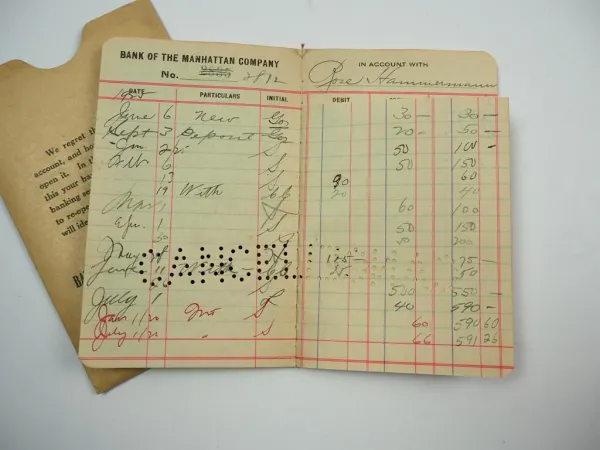 We regret th
account, and ho
open it. In th
this your ban
banking se
to re-op
will ide
BA
BANK OF THE MANHATTAN COMPANY
No. 2812
IN ACCOUNT WITH
Rose Hammermann
DATE PARTICULARS INITIAL DEBIT
June 6 New 30 — 30 —
Sept 3 Deposit 20 — 50 —
Jan 2 50 100 —
Feb 6 50 150
13 90 60
19 With 20 40
Mar 1 60 100
Apr. 1 50 150
30 50 200
May 125 — 75 —
June 11 With 25 50
500 550 —
July 1 40 590 —
Jan. 1/26 Int 60 590 60
July 1/26 " 66 591 26
CANCEL